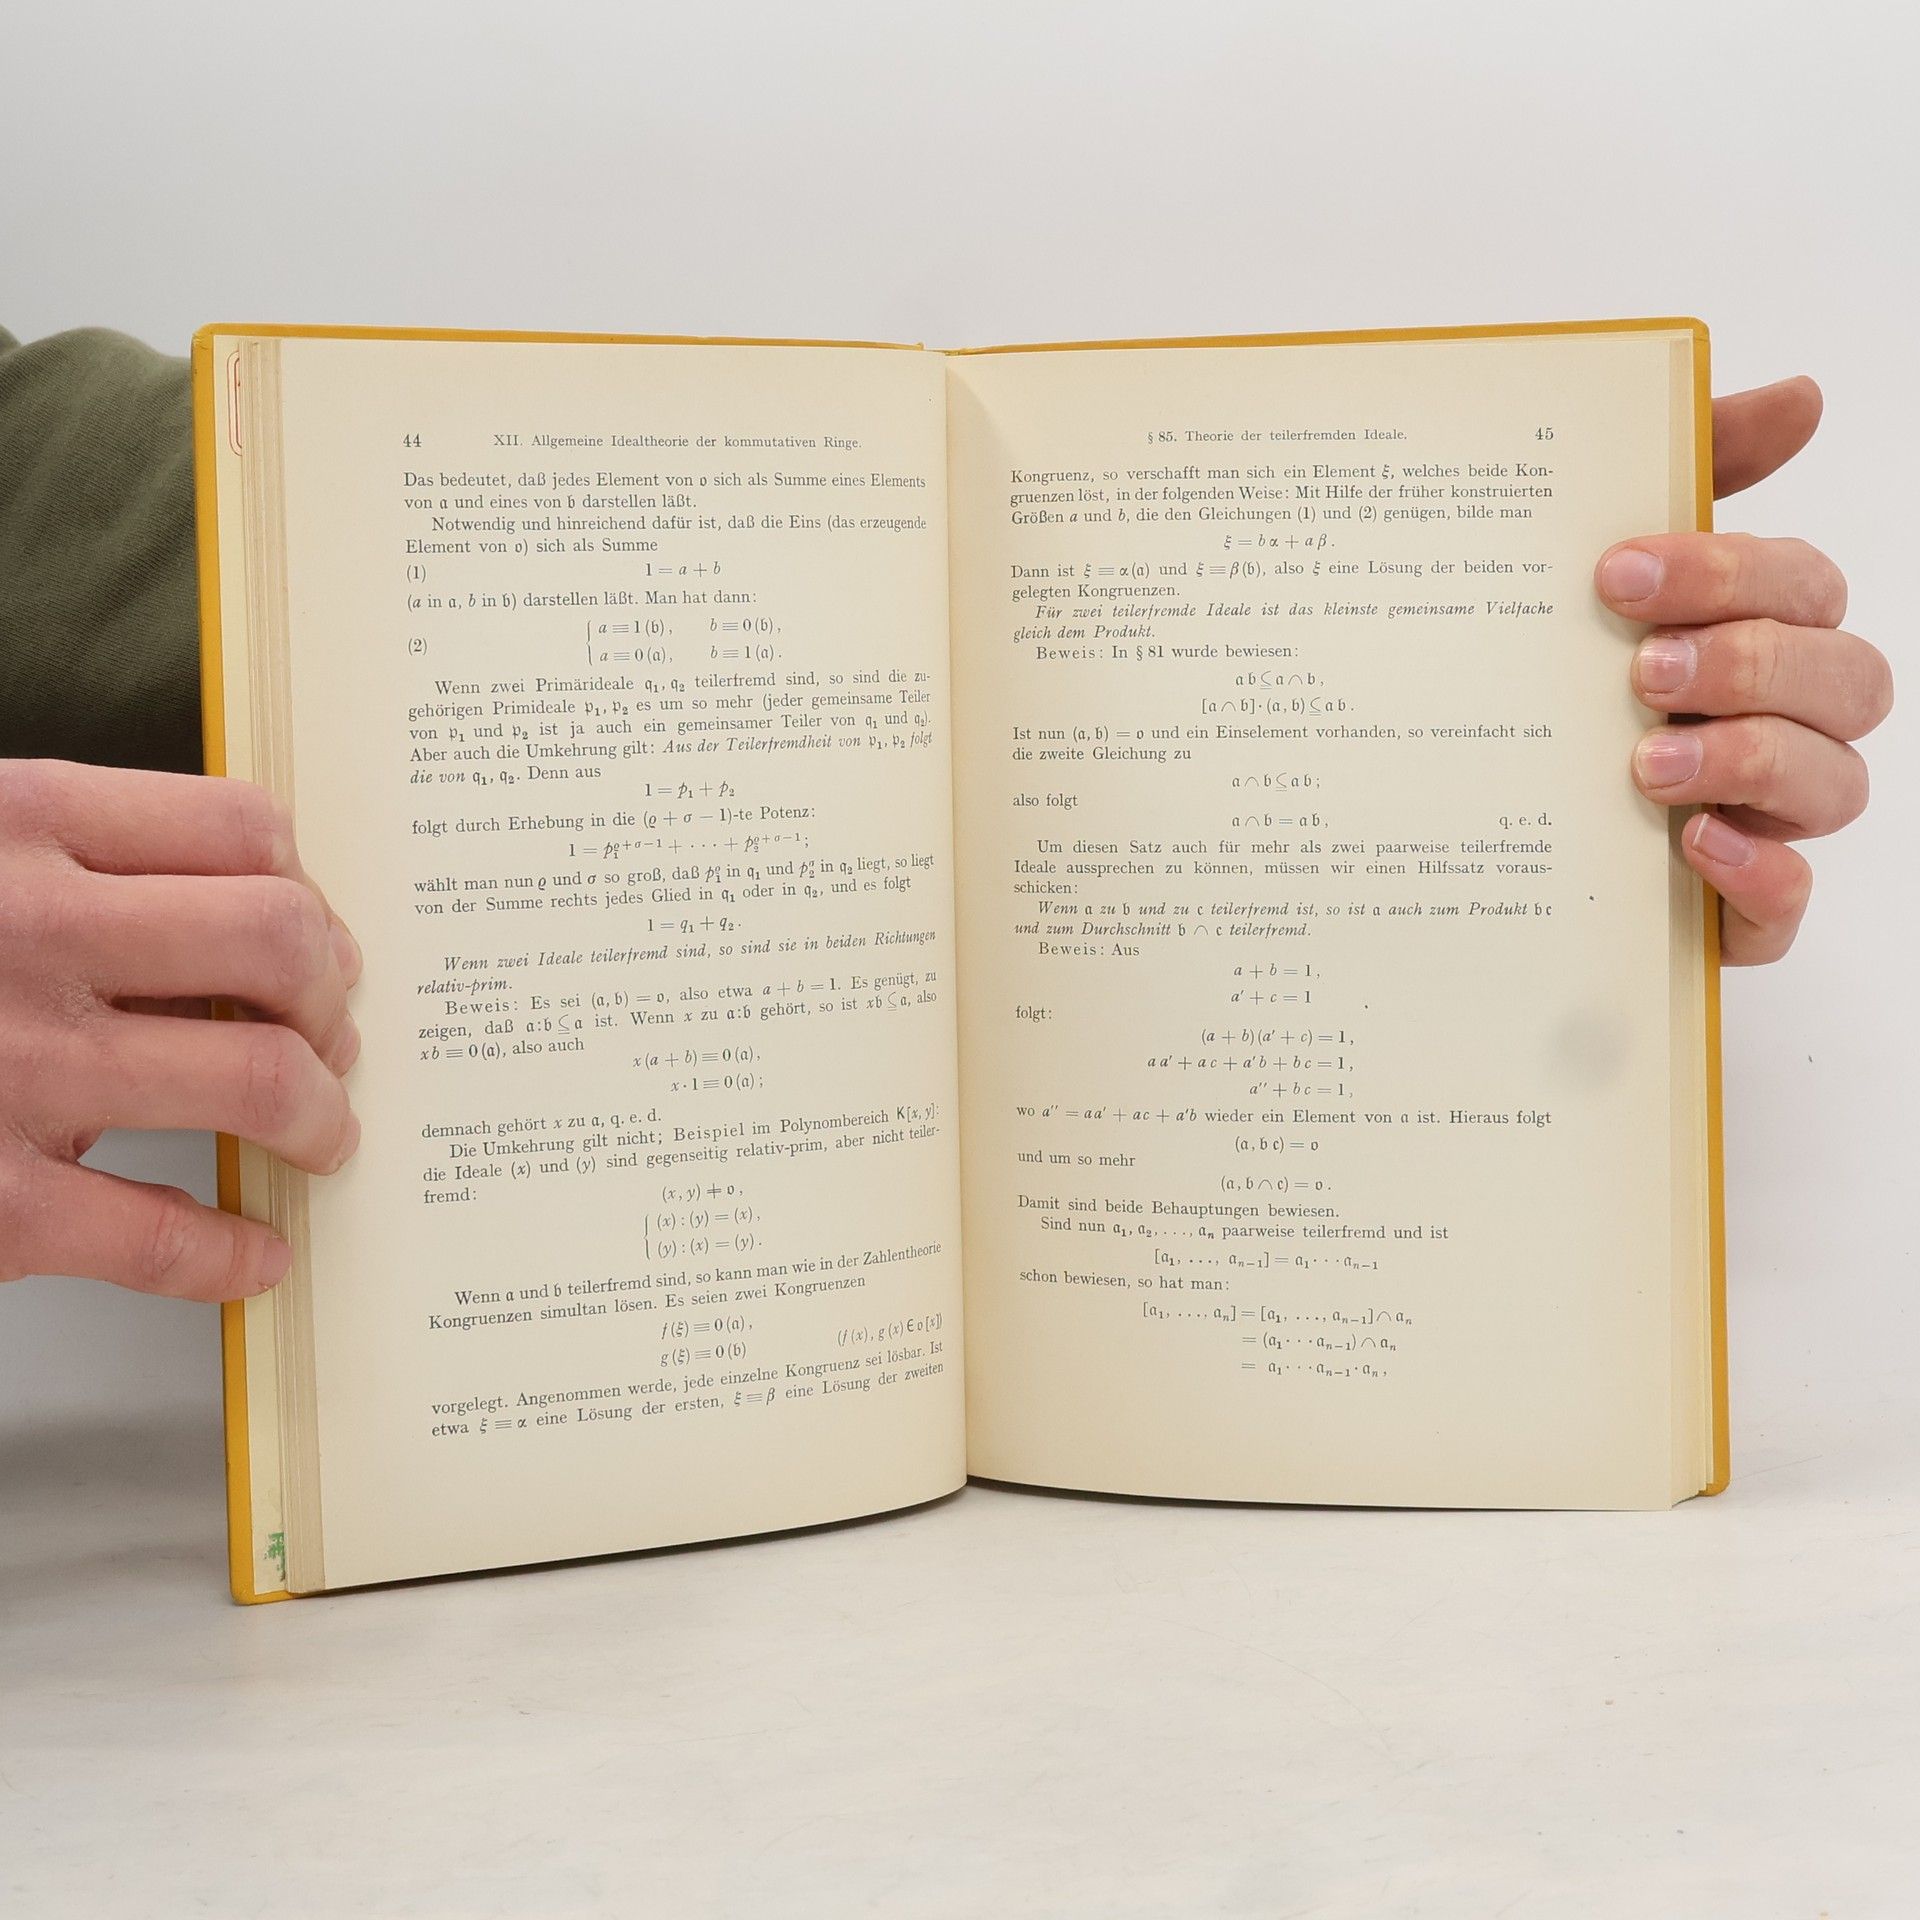 44 XII. Allgemeine Idealtheorie der kommutativen Ringe.
Das bedeutet, daß jedes Element von 𝔬 sich als Summe eines Elements
von 𝔞 und eines von 𝔟 darstellen läßt.
Notwendig und hinreichend dafür ist, daß die Eins (das erzeugende
Element von 𝔬) sich als Summe
(1) 1 = a + b
(a in 𝔞, b in 𝔟) darstellen läßt. Man hat dann:
(2) { a ≡ 1 (𝔟), b ≡ 0 (𝔟),
a ≡ 0 (𝔞), b ≡ 1 (𝔞).
Wenn zwei Primärideale 𝔮₁, 𝔮₂ teilerfremd sind, so sind die zu-
gehörigen Primideale 𝔭₁, 𝔭₂ es um so mehr (jeder gemeinsame Teiler
von 𝔭₁ und 𝔭₂ ist ja auch ein gemeinsamer Teiler von 𝔮₁ und 𝔮₂).
Aber auch die Umkehrung gilt: Aus der Teilerfremdheit von 𝔭₁, 𝔭₂ folgt
die von 𝔮₁, 𝔮₂. Denn aus
1 = p₁ + p₂
folgt durch Erhebung in die (ϱ + σ − 1)-te Potenz:
1 = p₁^{ϱ+σ−1} + · · · + p₂^{ϱ+σ−1};
wählt man nun ϱ und σ so groß, daß p₁^ϱ in 𝔮₁ und p₂^σ in 𝔮₂ liegt, so liegt
von der Summe rechts jedes Glied in 𝔮₁ oder in 𝔮₂, und es folgt
1 = q₁ + q₂.
Wenn zwei Ideale teilerfremd sind, so sind sie in beiden Richtungen
relativ-prim.
Beweis: Es sei (𝔞, 𝔟) = 𝔬, also etwa a + b = 1. Es genügt, zu
zeigen, daß 𝔞:𝔟 ⊆ 𝔞 ist. Wenn x zu 𝔞:𝔟 gehört, so ist x𝔟 ⊆ 𝔞, also
xb ≡ 0 (𝔞), also auch
x (a + b) ≡ 0 (𝔞),
x · 1 ≡ 0 (𝔞);
demnach gehört x zu 𝔞, q. e. d.
Die Umkehrung gilt nicht; Beispiel im Polynombereich K[x, y]:
die Ideale (x) und (y) sind gegenseitig relativ-prim, aber nicht teiler-
fremd:
(x, y) ≠ 𝔬,
{ (x) : (y) = (x),
(y) : (x) = (y).
Wenn 𝔞 und 𝔟 teilerfremd sind, so kann man wie in der Zahlentheorie
Kongruenzen simultan lösen. Es seien zwei Kongruenzen
f (ξ) ≡ 0 (𝔞),
g (ξ) ≡ 0 (𝔟) (f (x), g (x) ∈ 𝔬 [x])
vorgelegt. Angenommen werde, jede einzelne Kongruenz sei lösbar. Ist
etwa ξ ≡ α eine Lösung der ersten, ξ ≡ β eine Lösung der zweiten
§ 85. Theorie der teilerfremden Ideale. 45
Kongruenz, so verschafft man sich ein Element ξ, welches beide Kon-
gruenzen löst, in der folgenden Weise: Mit Hilfe der früher konstruierten
Größen a und b, die den Gleichungen (1) und (2) genügen, bilde man
ξ = b α + a β.
Dann ist ξ ≡ α (𝔞) und ξ ≡ β (𝔟), also ξ eine Lösung der beiden vor-
gelegten Kongruenzen.
Für zwei teilerfremde Ideale ist das kleinste gemeinsame Vielfache
gleich dem Produkt.
Beweis: In § 81 wurde bewiesen:
𝔞 𝔟 ⊆ 𝔞 ∩ 𝔟,
[𝔞 ∩ 𝔟] · (𝔞, 𝔟) ⊆ 𝔞 𝔟.
Ist nun (𝔞, 𝔟) = 𝔬 und ein Einselement vorhanden, so vereinfacht sich
die zweite Gleichung zu
𝔞 ∩ 𝔟 ⊆ 𝔞 𝔟;
also folgt
𝔞 ∩ 𝔟 = 𝔞 𝔟, q. e. d.
Um diesen Satz auch für mehr als zwei paarweise teilerfremde
Ideale aussprechen zu können, müssen wir einen Hilfssatz voraus-
schicken:
Wenn 𝔞 zu 𝔟 und zu 𝔠 teilerfremd ist, so ist 𝔞 auch zum Produkt 𝔟 𝔠
und zum Durchschnitt 𝔟 ∩ 𝔠 teilerfremd.
Beweis: Aus
a + b = 1,
a′ + c = 1
folgt:
(a + b) (a′ + c) = 1,
a a′ + a c + a′ b + b c = 1,
a′′ + b c = 1,
wo a′′ = aa′ + ac + a′b wieder ein Element von 𝔞 ist. Hieraus folgt
(𝔞, 𝔟 𝔠) = 𝔬
und um so mehr
(𝔞, 𝔟 ∩ 𝔠) = 𝔬.
Damit sind beide Behauptungen bewiesen.
Sind nun 𝔞₁, 𝔞₂, . . ., 𝔞ₙ paarweise teilerfremd und ist
[𝔞₁, . . ., 𝔞ₙ₋₁] = 𝔞₁ · · · 𝔞ₙ₋₁
schon bewiesen, so hat man:
[𝔞₁, . . ., 𝔞ₙ] = [𝔞₁, . . ., 𝔞ₙ₋₁] ∩ 𝔞ₙ
= (𝔞₁ · · · 𝔞ₙ₋₁) ∩ 𝔞ₙ
= 𝔞₁ · · · 𝔞ₙ₋₁ · 𝔞ₙ,